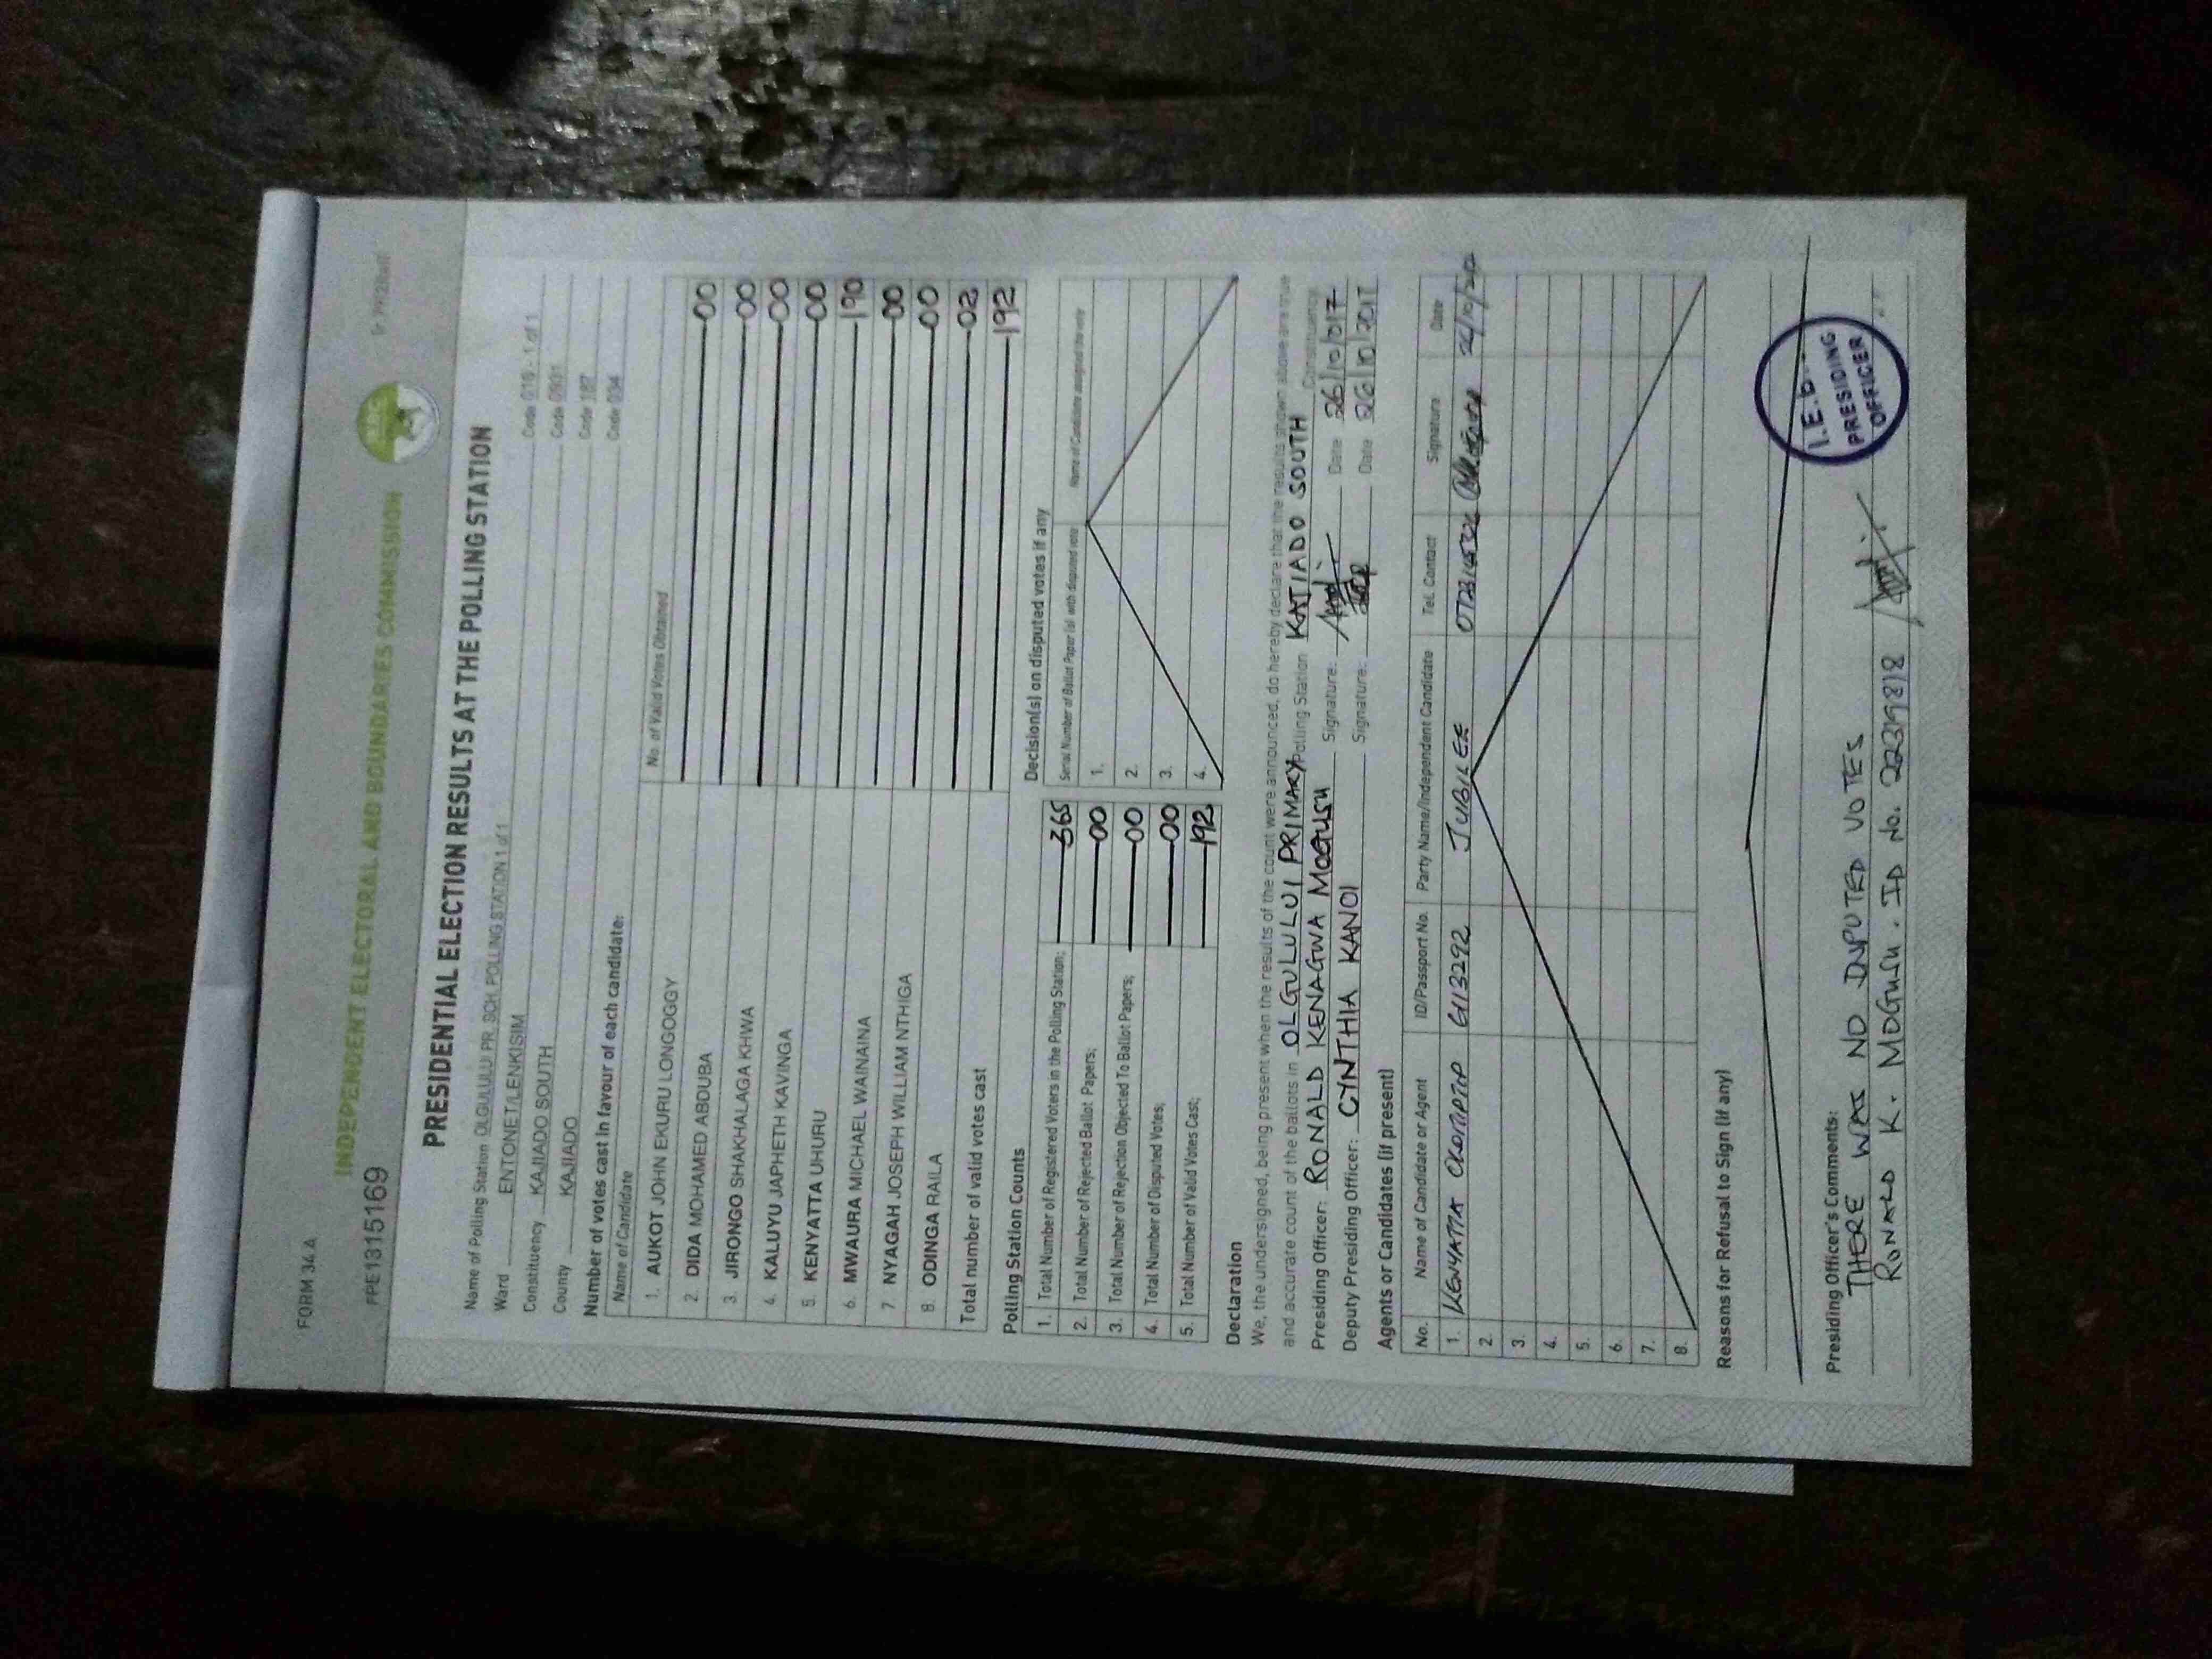 FORM 34 A
INDEPENDENT ELECTORAL AND BOUNDARIES COMMISSION
PPE1315169
PRESIDENTIAL ELECTION RESULTS AT THE POLLING STATION
Name of Polling Station OLGULULUI PR. SCH. POLLING STATION 1 of 1 Code 016 - 1 of 1
Ward ENTONET/LENKISIM Code 0931
Constituency KAJIADO SOUTH Code 187
County KAJIADO Code 034
Number of votes cast in favour of each candidate:
Name of Candidate No. of Valid Votes Obtained
1. AUKOT JOHN EKURU LONGOGGY 00
2. DIDA MOHAMED ABDUBA 00
3. JIRONGO SHAKHALAGA KHWA 00
4. KALUYU JAPHETH KAVINGA 00
5. KENYATTA UHURU 190
6. MWAURA MICHAEL WAINAINA 00
7. NYAGAH JOSEPH WILLIAM NTHIGA 00
8. ODINGA RAILA 02
Total number of valid votes cast 192
Polling Station Counts
1. Total Number of Registered Voters in the Polling Station; 365
2. Total Number of Rejected Ballot Papers; 00
3. Total Number of Rejection Objected To Ballot Papers; 00
4. Total Number of Disputed Votes; 00
5. Total Number of Valid Votes Cast; 192
Decision(s) on disputed votes if any
Serial Number of Ballot Paper (s) with disputed vote Name of Candidate assigned the vote
1.
2.
3.
4.
Declaration
We, the undersigned, being present when the results of the count were announced, do hereby declare that the results shown above are true
and accurate count of the ballots in OLGULULUI PRIMARY Polling Station KAJIADO SOUTH Constituency.
Presiding Officer: RONALD KENAGWA MOGUSU Signature: Date 26/10/017
Deputy Presiding Officer: CYNTHIA KANOI Signature: Date 26/10/2017
Agents or Candidates (if present)
No. Name of Candidate or Agent ID/Passport No. Party Name/Independent Candidate Tel. Contact Signature Date
1. KENYATTA G113292 JUBILEE
2.
3.
4.
5.
6.
7.
8.
Reasons for Refusal to Sign (if any)
Presiding Officer's Comments:
THERE WAS NO DISPUTED VOTES
RONALD K. MOGUSU. ID No. 22398818
I.E.B.
PRESIDING
OFFICER